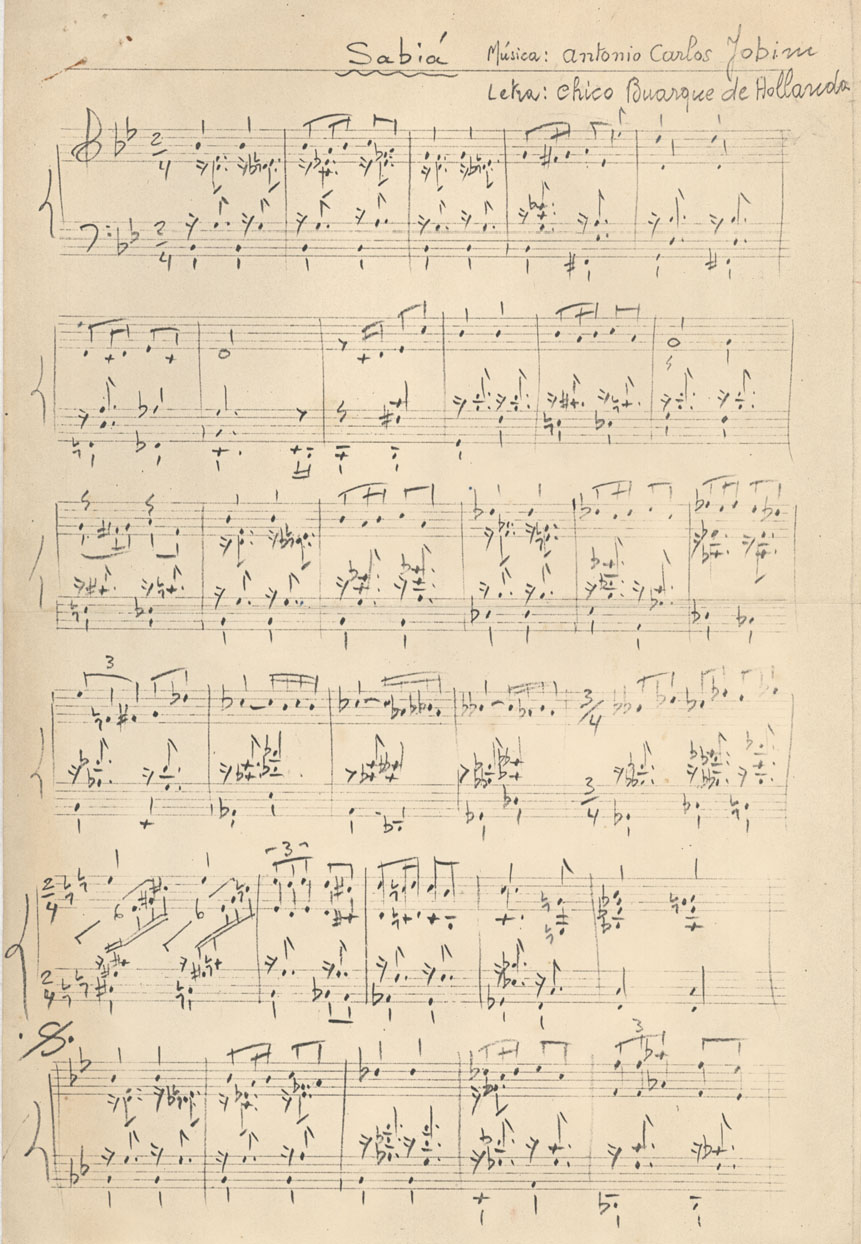 Sabiá Música: Antonio Carlos Jobim
Letra: Chico Buarque de Hollanda
2/4
2/4
3
3/4
3/4
3
2/4
2/4
3